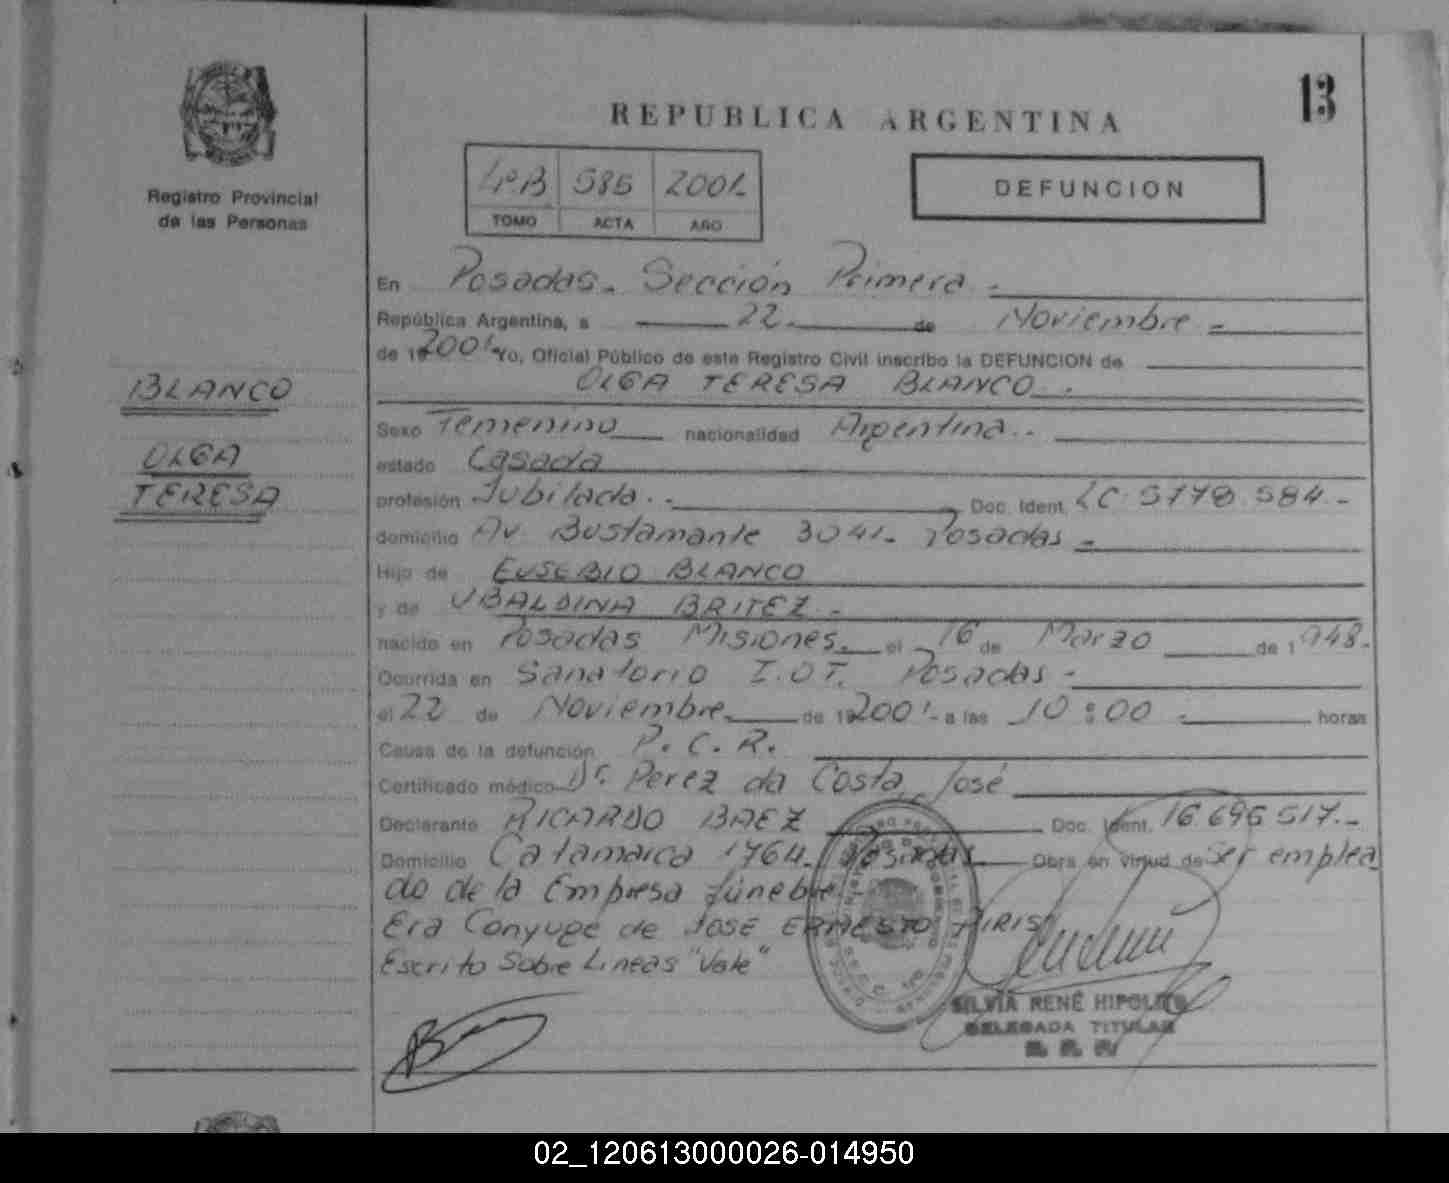 13
REPUBLICA ARGENTINA
Registro Provincial
de las Personas
585 2001
TOMO ACTA AÑO
DEFUNCION
En Posadas. Sección Primera.
República Argentina, a 22 de Noviembre
de 19 2001 Yo, Oficial Público de este Registro Civil inscribo la DEFUNCION de
OLGA TERESA BLANCO.
BLANCO
OLGA
TERESA
Sexo Femenino nacionalidad Argentina..
estado Casada
profesión Jubilada.. Doc. Ident. LC 5778.584.-
domicilio Av. Bustamante 3041. Posadas
Hijo de EUSEBIO BLANCO
y de UBALDINA BRITEZ.-
nacido en Posadas Misiones. el 16 de Marzo de 1948.
Ocurrida en Sanatorio I.O.T. Posadas.-
el 22 de Noviembre de 19 2001.- a las 10:00 horas
Causa de la defunción P.C.R.
Certificado médico Dr. Perez da Costa, José
Declarante RICARDO BAEZ Doc. Ident. 16.696.517.-
Domicilio Catamarca 1764. Posadas Obra en virtud de Ser emplea
do de la Empresa fúnebre.
Era Conyuge de JOSE ERNESTO PIRIS
Escrito Sobre Lineas "Vale"
SILVIA RENÉ HIPOLITO
DELEGADA TITULAR
02_120613000026-014950